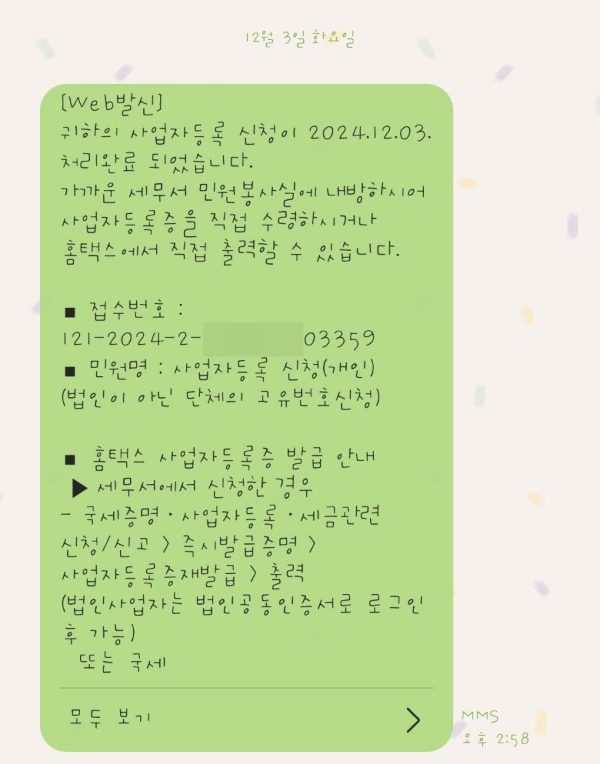 12월 3일 화요일
[Web발신]
귀하의 사업자등록 신청이 2024.12.03.
처리완료 되었습니다.
가까운 세무서 민원봉사실에 내방하시어
사업자등록증을 직접 수령하시거나
홈택스에서 직접 출력할 수 있습니다.
■ 접수번호 :
121-2024-2- 03359
■ 민원명 : 사업자등록 신청(개인)
(법인이 아닌 단체의 고유번호신청)
■ 홈택스 사업자등록증 발급 안내
▶ 세무서에서 신청한 경우
- 국세증명·사업자등록·세금관련
신청/신고 > 즉시발급증명 >
사업자등록증재발급 > 출력
(법인사업자는 법인공동인증서로 로그인
후 가능)
또는 국세
모두 보기 >
MMS
오후 2:58